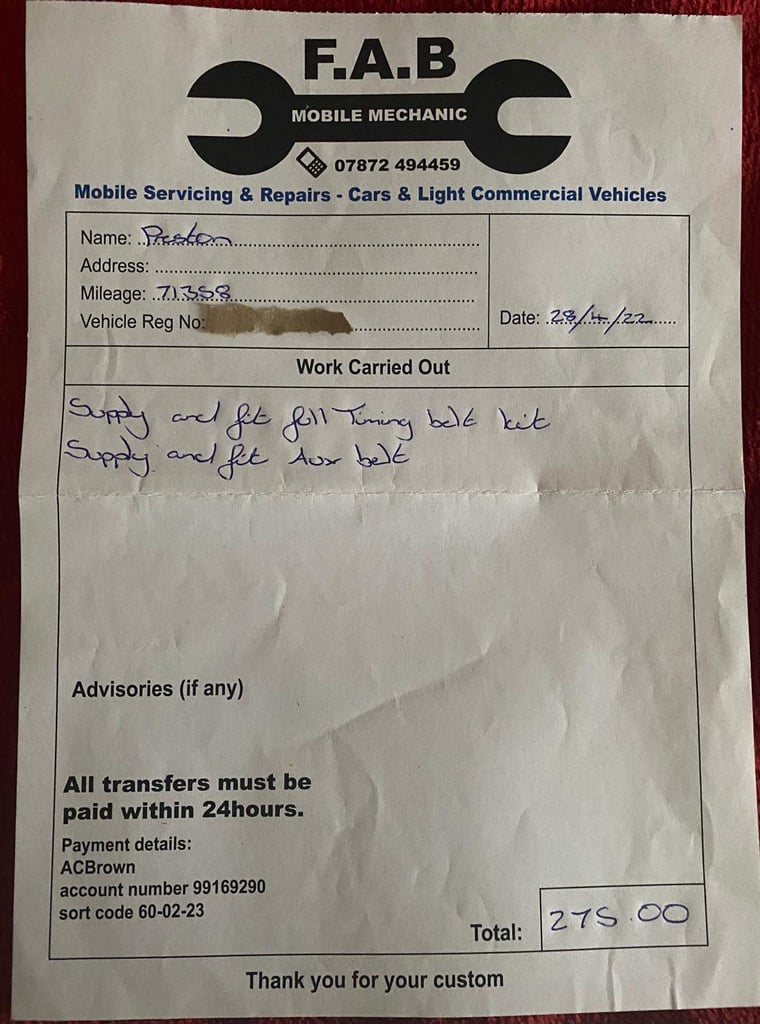 F.A.B
MOBILE MECHANIC
07872 494459
Mobile Servicing & Repairs - Cars & Light Commercial Vehicles
Name: Preston
Address:
Mileage: 71358
Vehicle Reg No:
Date: 28/4/22
Work Carried Out
Supply and fit full Timing belt kit
Supply and fit Aux belt
Advisories (if any)
All transfers must be
paid within 24hours.
Payment details:
ACBrown
account number 99169290
sort code 60-02-23
Total: 275.00
Thank you for your custom